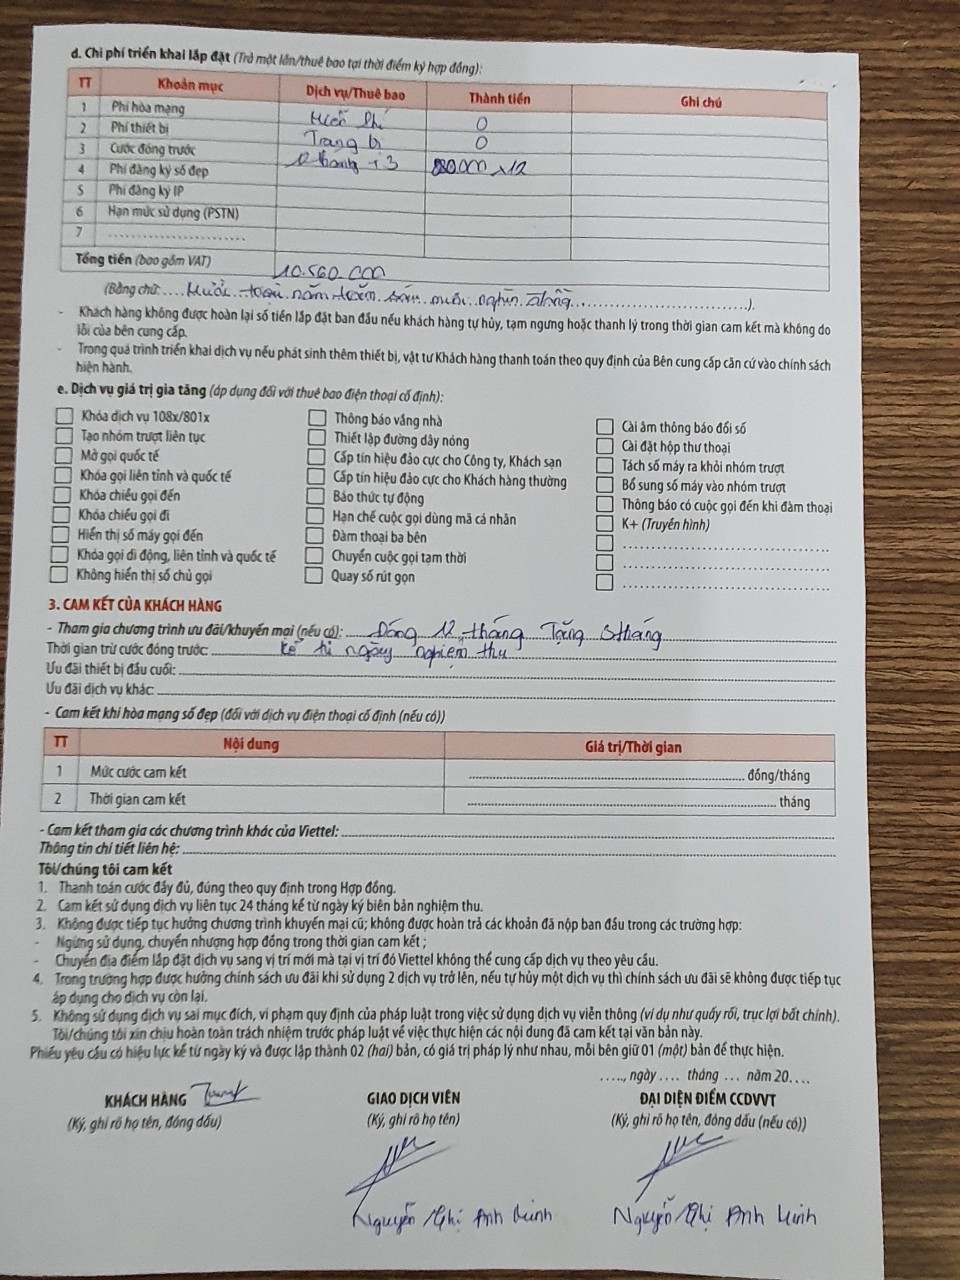 d. Chi phí triển khai lắp đặt (Trả một lần/thuê bao tại thời điểm ký hợp đồng):
TT Khoản mục Dịch vụ/Thuê bao Thành tiền Ghi chú
1 Phí hòa mạng Miễn Phí 0
2 Phí thiết bị Trang bị 0
3 Cước đóng trước 12 tháng + 3 880.000 x 12
4 Phí đăng ký số đẹp
5 Phí đăng ký IP
6 Hạn mức sử dụng (PSTN)
7 ........................
Tổng tiền (bao gồm VAT) 10.560.000
(Bằng chữ: .... Mười triệu năm trăm sáu mươi nghìn đồng ....................).
- Khách hàng không được hoàn lại số tiền lắp đặt ban đầu nếu khách hàng tự hủy, tạm ngưng hoặc thanh lý trong thời gian cam kết mà không do
lỗi của bên cung cấp.
- Trong quá trình triển khai dịch vụ nếu phát sinh thêm thiết bị, vật tư Khách hàng thanh toán theo quy định của Bên cung cấp căn cứ vào chính sách
hiện hành.
e. Dịch vụ giá trị gia tăng (áp dụng đối với thuê bao điện thoại cố định):
Khóa dịch vụ 108x/801x
Tạo nhóm trượt liên tục
Mở gọi quốc tế
Khóa gọi liên tỉnh và quốc tế
Khóa chiều gọi đến
Khóa chiều gọi đi
Hiển thị số máy gọi đến
Khóa gọi di động, liên tỉnh và quốc tế
Không hiển thị số chủ gọi
Thông báo vắng nhà
Thiết lập đường dây nóng
Cấp tín hiệu đảo cực cho Công ty, Khách sạn
Cấp tín hiệu đảo cực cho Khách hàng thường
Báo thức tự động
Hạn chế cuộc gọi dùng mã cá nhân
Đàm thoại ba bên
Chuyển cuộc gọi tạm thời
Quay số rút gọn
Cài âm thông báo đổi số
Cài đặt hộp thư thoại
Tách số máy ra khỏi nhóm trượt
Bổ sung số máy vào nhóm trượt
Thông báo có cuộc gọi đến khi đàm thoại
K+ (Truyền hình)
3. CAM KẾT CỦA KHÁCH HÀNG
- Tham gia chương trình ưu đãi/khuyến mại (nếu có): Đóng 12 tháng Tặng 3 tháng
Thời gian trừ cước đóng trước: kể từ ngày nghiệm thu
Ưu đãi thiết bị đầu cuối:
Ưu đãi dịch vụ khác:
- Cam kết khi hòa mạng số đẹp (đối với dịch vụ điện thoại cố định (nếu có))
TT Nội dung Giá trị/Thời gian
1 Mức cước cam kết ........................ đồng/tháng
2 Thời gian cam kết ........................ tháng
- Cam kết tham gia các chương trình khác của Viettel:
Thông tin chi tiết liên hệ:
Tôi/chúng tôi cam kết
1. Thanh toán cước đầy đủ, đúng theo quy định trong Hợp đồng.
2. Cam kết sử dụng dịch vụ liên tục 24 tháng kể từ ngày ký biên bản nghiệm thu.
3. Không được tiếp tục hưởng chương trình khuyến mại cũ; không được hoàn trả các khoản đã nộp ban đầu trong các trường hợp:
- Ngừng sử dụng, chuyển nhượng hợp đồng trong thời gian cam kết ;
- Chuyển địa điểm lắp đặt dịch vụ sang vị trí mới mà tại vị trí đó Viettel không thể cung cấp dịch vụ theo yêu cầu.
4. Trong trường hợp được hưởng chính sách ưu đãi khi sử dụng 2 dịch vụ trở lên, nếu tự hủy một dịch vụ thì chính sách ưu đãi sẽ không được tiếp tục
áp dụng cho dịch vụ còn lại.
5. Không sử dụng dịch vụ sai mục đích, vi phạm quy định của pháp luật trong việc sử dụng dịch vụ viễn thông (ví dụ như quấy rối, trục lợi bất chính).
Tôi/chúng tôi xin chịu hoàn toàn trách nhiệm trước pháp luật về việc thực hiện các nội dung đã cam kết tại văn bản này.
Phiếu yêu cầu có hiệu lực kể từ ngày ký và được lập thành 02 (hai) bản, có giá trị pháp lý như nhau, mỗi bên giữ 01 (một) bản để thực hiện.
....., ngày .... tháng ... năm 20....
KHÁCH HÀNG GIAO DỊCH VIÊN ĐẠI DIỆN ĐIỂM CCDVVT
(Ký, ghi rõ họ tên, đóng dấu) (Ký, ghi rõ họ tên) (Ký, ghi rõ họ tên, đóng dấu (nếu có))
Nguyễn Thị Anh Minh Nguyễn Thị Anh Minh